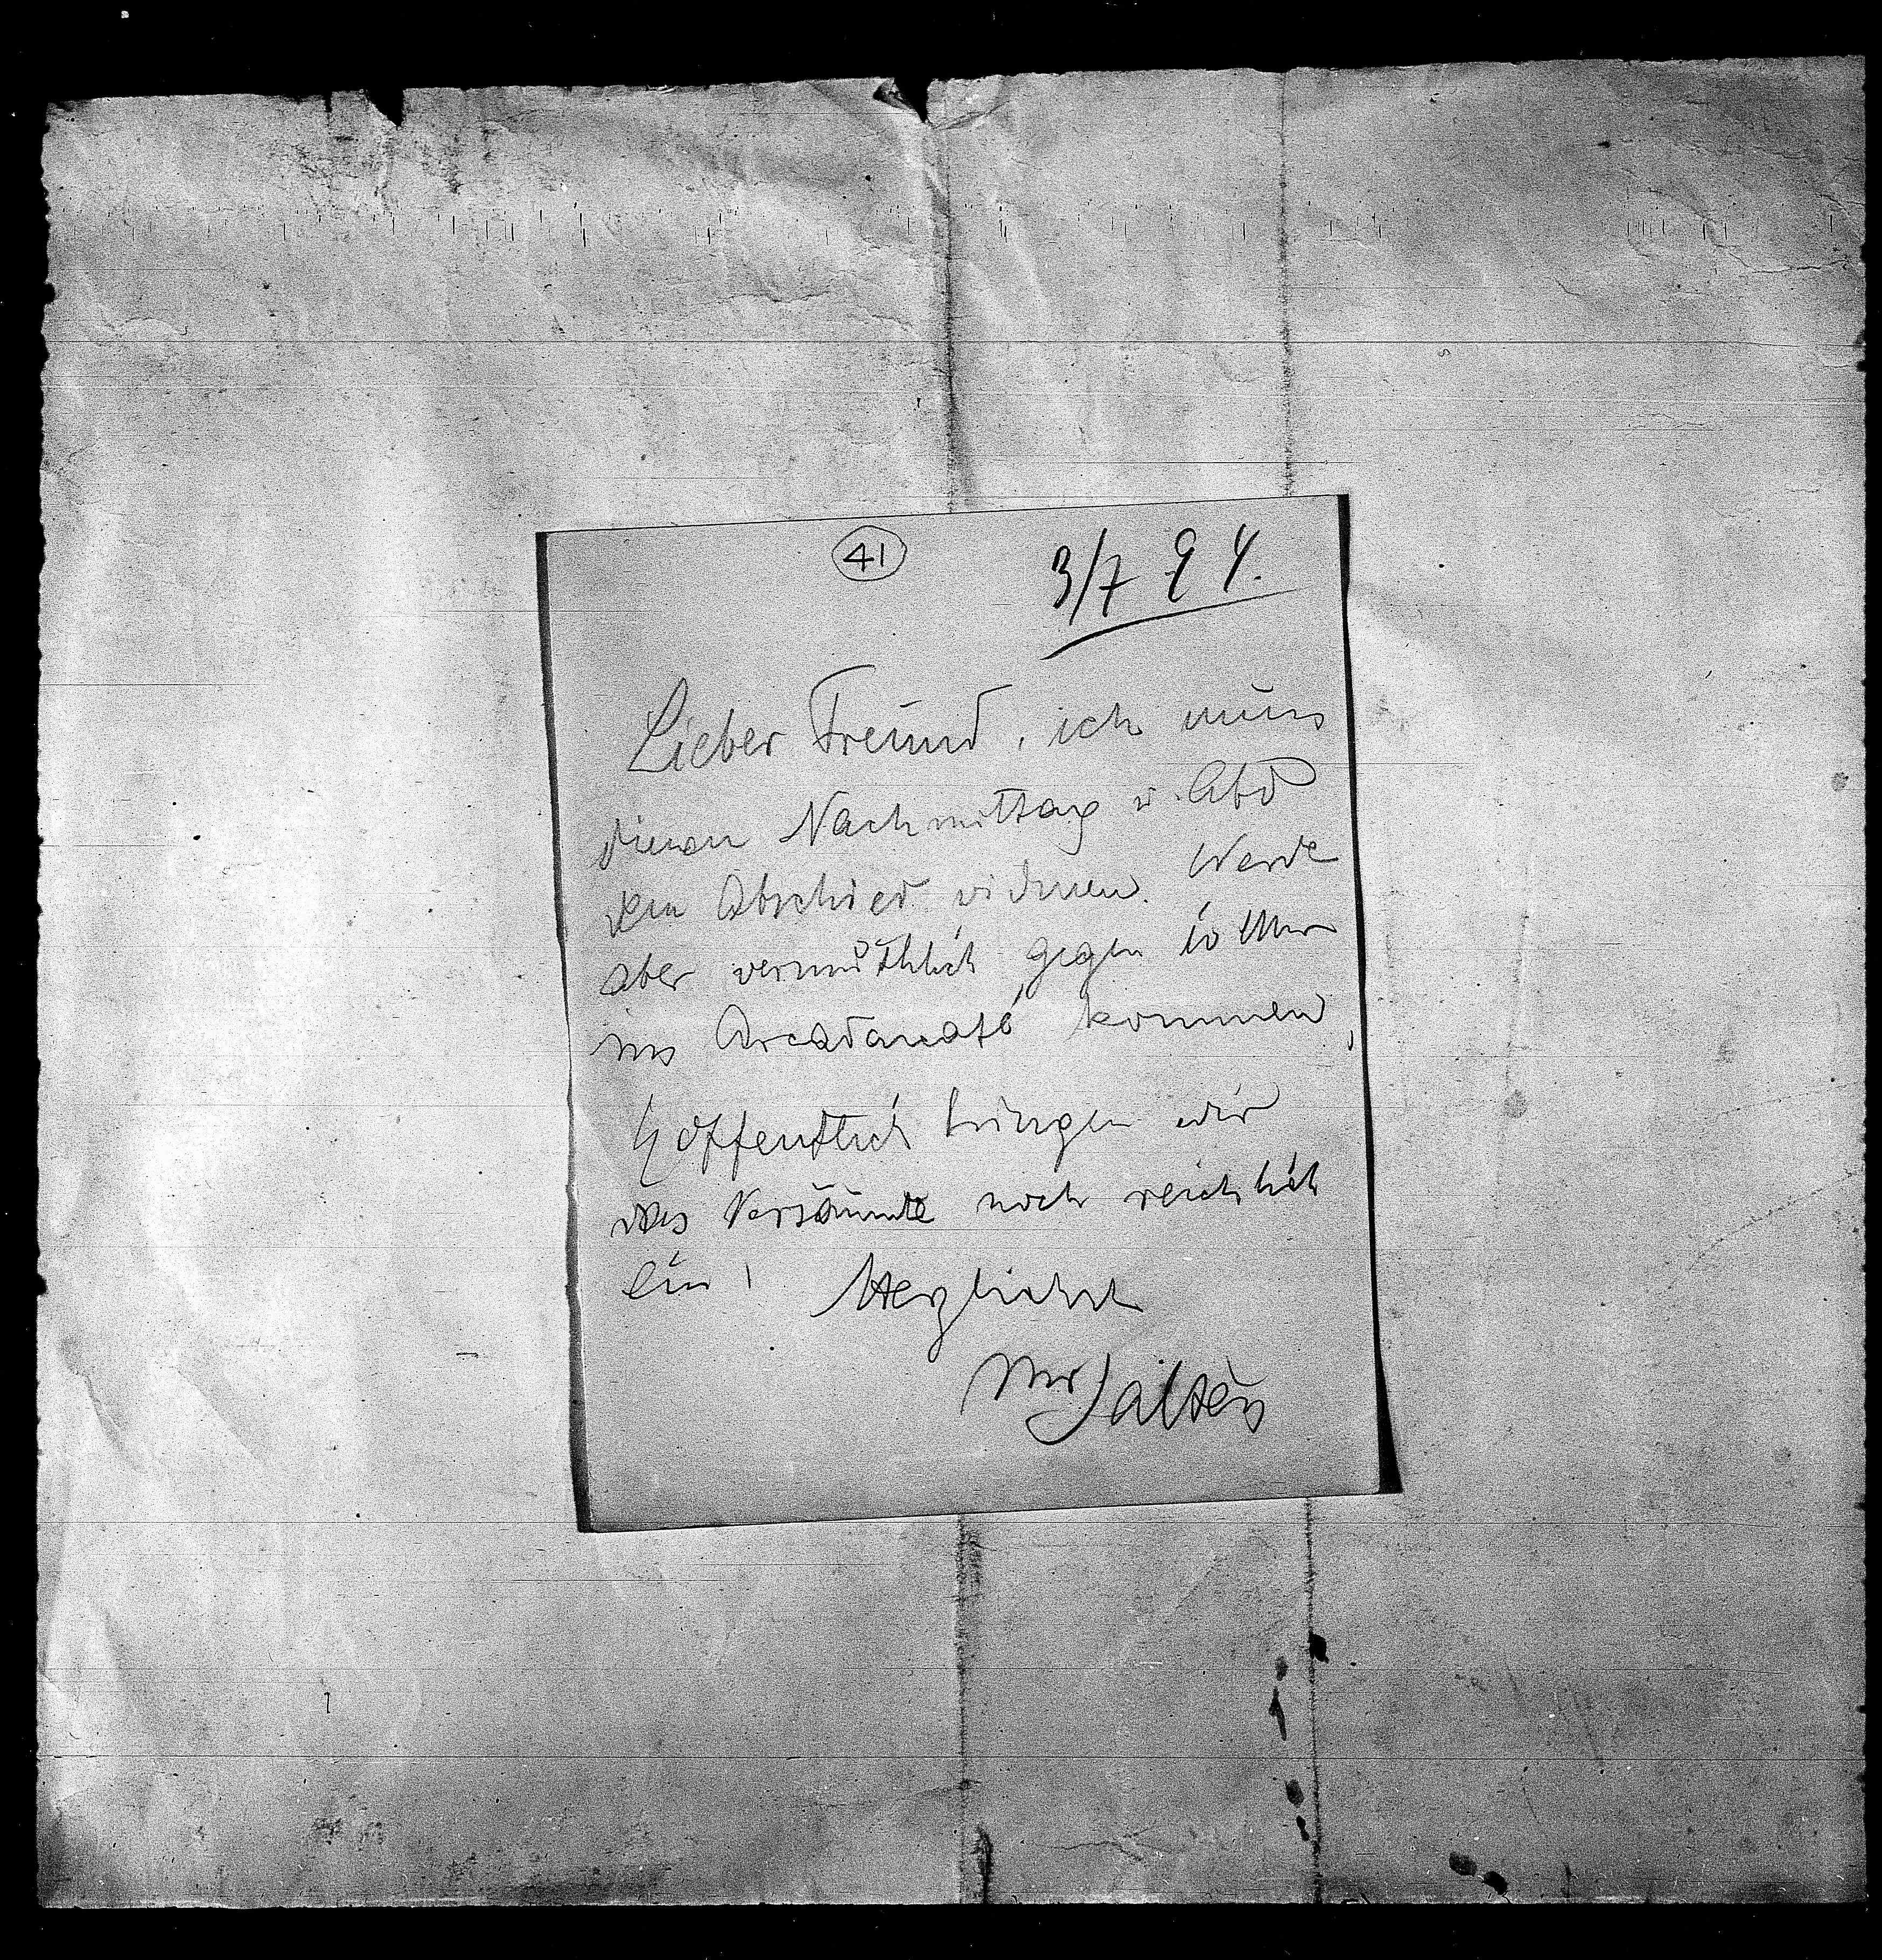 41
3/7 94.
Lieber Freund, ich muss
diesen Nachmittag u. Abd
dem Abschied widmen. Werde
aber vermuthlich gegen 10 Uhr
ins Arcadencafé kommen,
hoffentlich bringen wir
das Versäumte noch reichlich
ein! Herzlichst
Ihr Salten